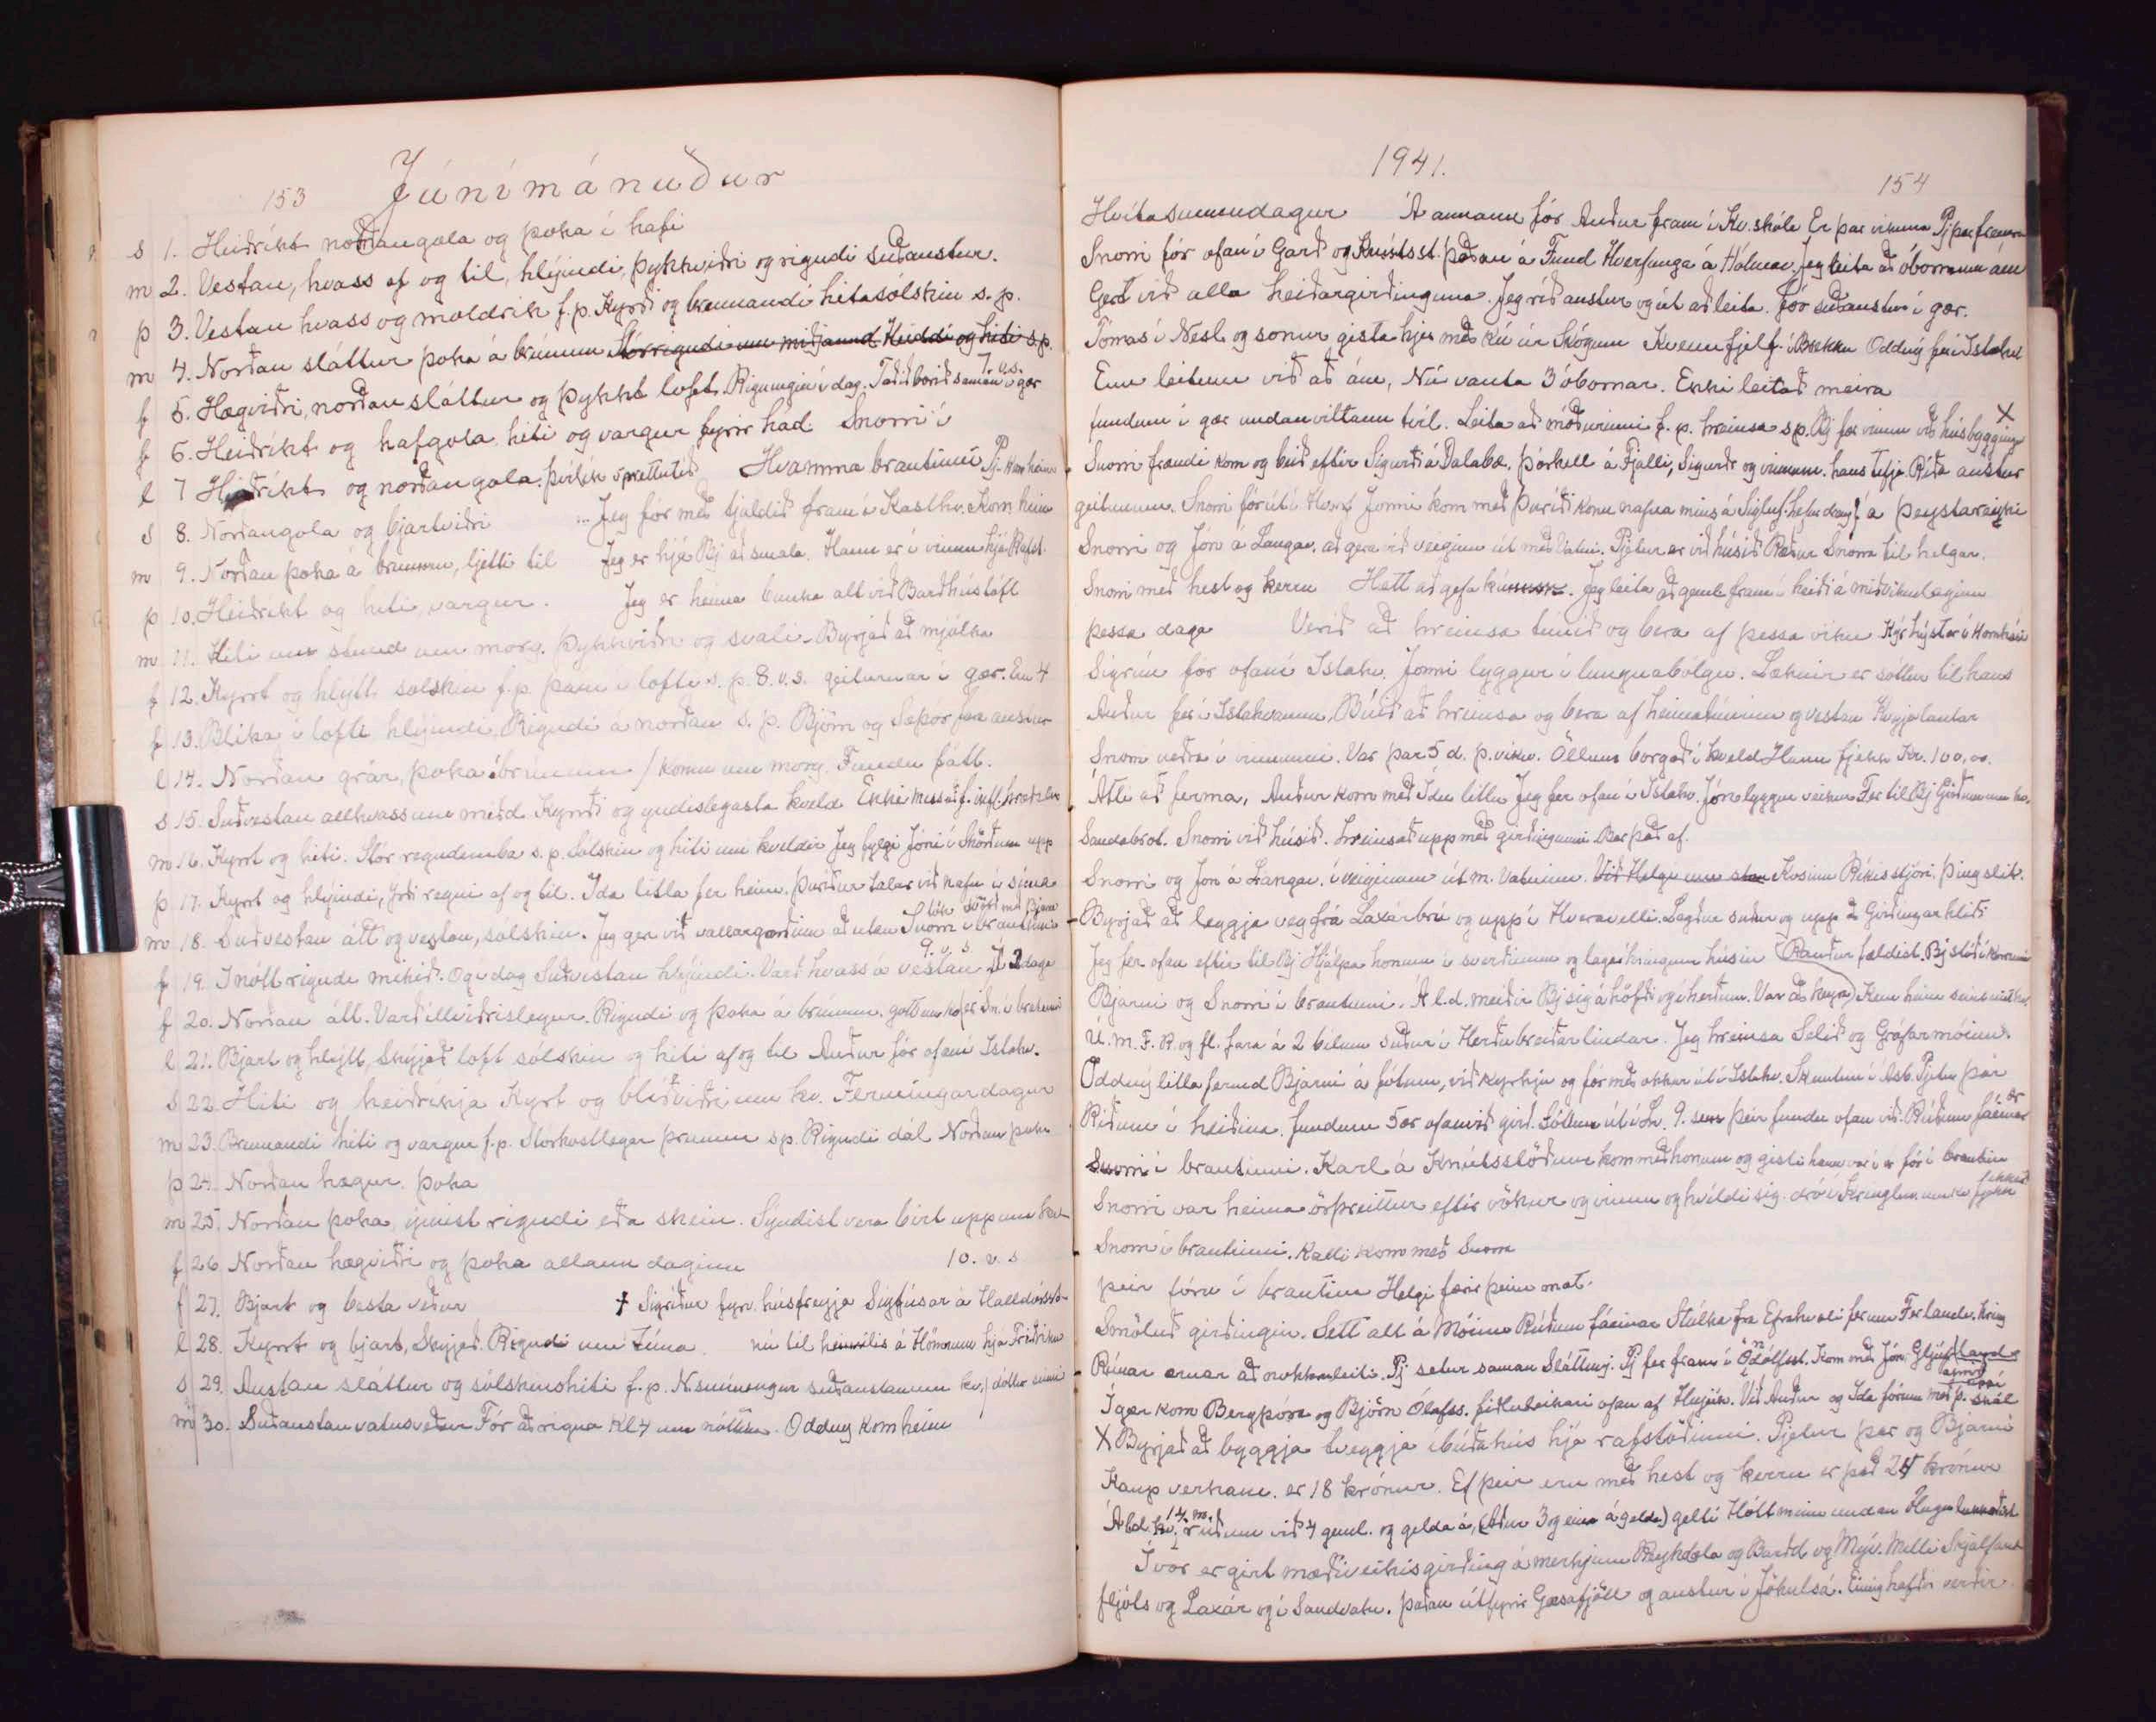 153 Júnímánuður
s 1. Heiðríkt norðangola og þoka í hafi
m 2. Vestan, hvass af og til, hlýindi, þykkviðri og rigndi suðaustur.
þ 3. Vestan hvass og moldrik f.p. Kyrrði og brennandi hitasólskin s.p.
m 4. Norðan sláttur þoka á brúnum Stórrigndi um miðjannd Heiddi og hiti s.p.
7. v.s.
f 5. Hægviðri, norðan sláttur og þykkt loft. Rigningin í dag. Taðið borið saman í gær
f 6. Heiðríkt og hafgola hiti og vargur fyrir hád. Snorri í
l 7 Heiðríkt og norðangola. þvílík sprettutíð Hvamma brautinni Pj. kom heim
s 8. Norðangola og bjartviðri Jeg fór með tjaldið fram í Kasthv. Kom heim
m 9. Norðan þoka á brúnum, ljetti til Jeg er hjá Bj að smala. Hann er í vinnu hjá Rafst.
þ 10. Heiðríkt og hiti, vargur. Jeg er heima allt við
m 11. Hiti um stund um morg. þykkviðri og svali. Byrjað að mjólka
f 12. Kyrrt og hlýtt sólskin f.p. þam í lofti s.p. 8. v.s. geiturnar í gær. En 4
f 13. Blika í lofti hlýindi. Rigndi á norðan s.p. Björn og fara austur
l 14. Norðan grár, þoka í brúnum / komu um morg. Fundu fátt.
s 15. Suðvestan allhvass um midd. Kyrrði og yndislegasta kveld Ekki messað f.
m 16. Kyrrt og hiti. Stór regndemba s.p. Sólskin og hiti um kveldið Jeg fylgi Jóni í Skörðum upp
þ 17. Kyrrt og hlýindi, Ýrði regni af og til. Ida litla fer heim. þuríður talar við nafn í síma
tók svörð með Bjarna
m 18. Suðvestan átt og vestan, sólskin. Jeg ger við vallargarðinn að utan Snorri í brautinni
9. v. s.
f 19. Í nótt rigndi mikið. Og í dag Suðvestan hlýindi. Varð hvass á vestan Í 2 daga
f 20. Norðan átt. Varð illviðrislegur. Rigndi og þoka á brúnum. gott um kv (er Sn. í brautinni
l 21. Bjart og hlýtt, skýjað loft sólskin og hiti af og til Auður fór ofan í Íslahv.
s 22. Hiti og heiðríkja Kyrt og blíðviðri um kv. Fermingardagur
m 23. Brennandi hiti og vargur f.p. Stórkostlegar þrumur s.p. Rigndi dál. Norðan þoka
þ 24. Norðan hægur. þoka
m 25. Norðan þoka, ýmist rigndi eða skein. Syndist vera birt upp um kv
f 26 Norðan hægviðri og þoka allann daginn 10. v. s
f 27. Bjart og besta veður † Sigríður fyrv. húsfreyja Sigfúsar á Halldórsst
l 28. Kyrrt og bjart, Skyjað. Rigndi um tíma. nú til heimilis á Hömrum hjá Friðriku
s 29. Austan sláttur og sólskinshiti f.p. N. suðaustanum kv.) dóttur sinni
m 30. Suðaustan vatnsveður Fór að rigna kl 4 um nóttina. Oddny kom heim
1941. 154
Hvítasunnudagur Á annann fór Auður fram í Kv. skóla Er þar vinna Pj þar framm
Snorri fór ofan í Garð og Knútsst. þaðan á Fund Hverfunga á Hólmav. Jeg leita að óbornum ám
Gert við alla heiðargirðinguna. Jeg ríð austur og út að leita. Fór suðaustur í gær.
Tómas í Nesl og sonur gista hjer með kú úr Skógum Kvennfjelf. í Brekku Oddný fór í Íslahv
Enn leitum við að ám, Nú vanta 3 óbornar. Ekki leitað meira
fundum í gær undanvilltann tvíl. Leita að móðurinni f.p. hreinsa s.p. Bj fær vinnu við húsbygging X
Snorri frændi kom og beið eftir Sigurði á Dalabæ. Þorkell á Fjalli, Sigurðr og vinnum. hans tefja Ríða austur
geitunum. Snorri fór út í Hverf Jonni kom með þuríði konu nafna míns á Sigluf. hefur dag } á þeystareyki
Snorri og Jón á Laugar. að gera við veiginn út með Vatni. Pjetur er við húsið Ræður Snorra til helgar.
Snorri með hest og kerru Hætt að gefa kúnum. Jeg leita að gemb fram í heiði á miðvikudaginn
þessa daga Verið að hreinsa túnið og bera af þessa viku
Sigrún fór ofan í Íslahv. Jonni lyggur í lungnabólgu. Læknir er sóttur til hans
Auður fer í Íslahvamm, Búið að hreinsa og bera af heimatúninu og vestan Kvyjalautar
Snorri hætti í vinnunni. Var þar 5 d. þ. viku. Öllum borgað í kveld Hann fjekk Kr. 100,00.
Átti að ferma, Auður kom með Idu litlu Jeg fer ofan í Íslahv. Jón lyggur veikur Fer til Bj
Sandabrot. Snorri við húsið. hreinsað upp með girðingunni Bar það af.
Snorri og Jón á Langav. í veiginum út m. Vatninu. Við Helga Kosinn Ríkisstjóri. þingslit.
Byrjað að leggja veg frá Laxárbrú og upp í Hveravelli. Lagður suður og upp 2 Girðingar hlið
Jeg fer ofan eftir til Bj Hjálpa honum í sverðinum og laga kringum húsin (Rauður fældist. Bj stóð í kerrunni
Bjarni og Snorri í brautinni. Á l.d. meiðir Bj sig á höfði og í herðum. Var að keyra) Kem heim
U. M. F. R. og fl. fara á 2 bílum suður í Herðubreiðarlindar. Jeg hreinsa Selið og Grófarmóinn.
Oddný litla fermd Bjarni á fótum, við kyrkju og fór með okkur út í Íslahv. Skemtun í Asb. Pjetur þar
Riðum í heiðina. fundum 5 ær ofanvið girð. Sóttum út í Lv. 9. sem þeir fundu ofan við. Riðum fáeinar ær
Snorri í brautinni. Karl á Knútsstöðum kom með honum og gisti hann fór í brautina
Snorri var heima örþreittur eftir vökur og vinnu og hvíldi sig.
Snorri í brautinni. Kalli kom með Snorra
þeir fóru í brautina Helgi færir þeim mat.
Smöluð girðingin. Sett allt á Móinn Rúðum fáeinar Stúlka frá Egvahv fermd
Rúnar ærnar að nokkruleiti. Pj setur saman Sláttuvj. Pj fer fram í Öndólfsst. Kom með Jón
Í gær kom Bergþóra og Björn Ólafss. fiðluleikari ofan af Húsavík. Við Auður og Ida fórum með þ.
X Byrjað að byggja tveggja íbúða hús hjá rafstöðinni. Pjetur þar og Bjarni
Kaup verkam. er 18 krónur. Ef þeir eru með hest og kerru er það 24 krónur
Á ld. kv. 14. m. rúðum við 4 geml. og gelda á, (Áður 3 og eina á gelda) gelti
Í vor er girt mæðiveikisgirðing á merkjum Reykdæla og Barðd og Mýv. Milli Skjálfand
fljóts og Laxár og í Sandvatn. þaðan útfyrir Gæsafjöll og austur í Jökulsá. Einnig hafðir verðir